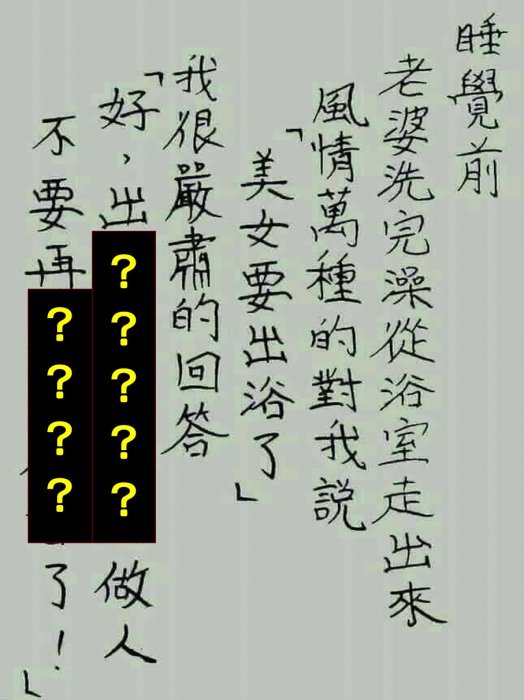 睡覺前
老婆洗完澡從浴室走出來
風情萬種的對我說
「美女要出浴了」
我很嚴肅的回答
「好,出?????做人
不要再????了!」